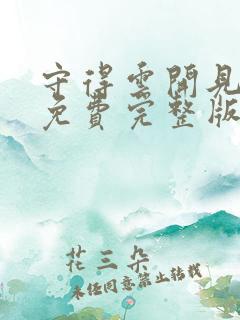 守得云開見
免費完整版
花三朵
未经同意禁止转载